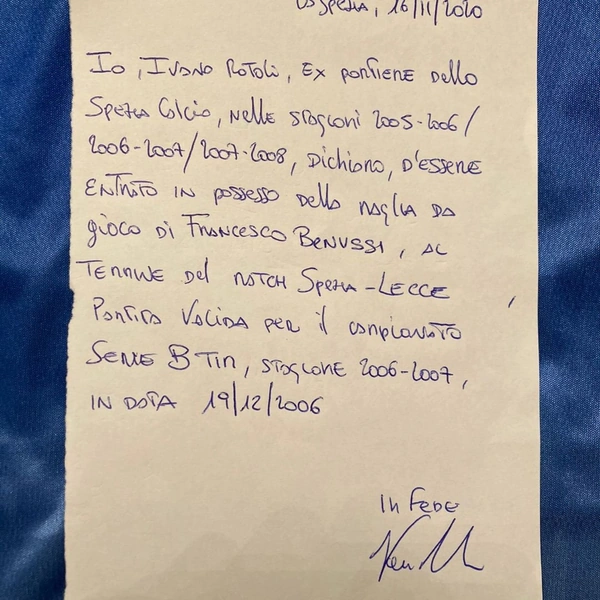 La Spezia, 16/11/2020
Io, Ivano Rotoli, ex portiere dello
Spezia Calcio, nelle stagioni 2005-2006/
2006-2007/2007-2008, dichiaro, d'essere
entrato in possesso della maglia da
gioco di Francesco Benussi, al
termine del match Spezia-Lecce
Partita valida per il campionato
Serie B Tim, stagione 2006-2007,
in data 19/12/2006
In Fede